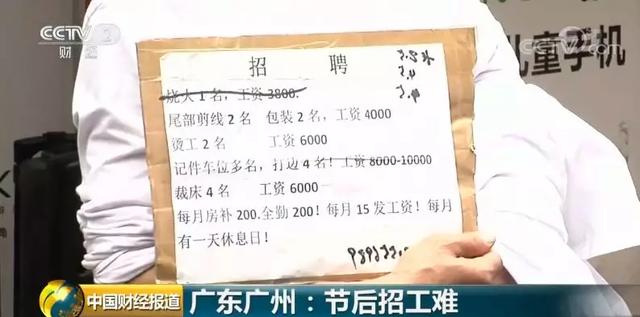 CCTV 2
财经
CCTV.com
儿童手机
招 聘
烧火1名，工资3800.
尾部剪线2名 包装2名，工资4000
烫工2名 工资6000
记件车位多名，打边4名！工资8000-10000
裁床4名 工资6000
每月房补200.全勤200！每月15发工资！每月
有一天休息日！
中国财经报道
广东广州：节后招工难